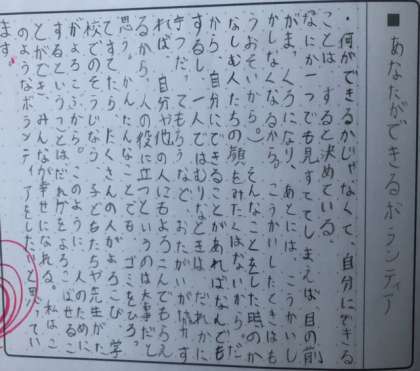 ■ あなたができるボランティア
・何ができるかじゃなくて、自分にできる
ことは、すると決めている。
なにか一つでも見すててしまえば目の前
がまっくろになり、あとには、こうかいし
かしなくなるから。(こうかいしたときはも
うおそいから。)そんなことをした時のか
なしむ人たちの顔をみたくはないから。だ
から、自分にできることがあればなんでも
するし、一人ではむりなときは、だれかに
てもらうなど、おたがいが
れば、自分や他の人にもよろこんでもらえ
るから、人の役に立つというのは大事だと
思う。かんたんなことでも、ゴミをひろっ
てすてたら、たくさんの人がよろこび、学
校でのそうじなら、子どもたちや先生がた
がよろこぶから。このように、人のために
するということはだれかをよろこばせるこ
とができ、みんなが幸せになれる。私はこ
のようなボランティアをしたいと思ってい
ます。